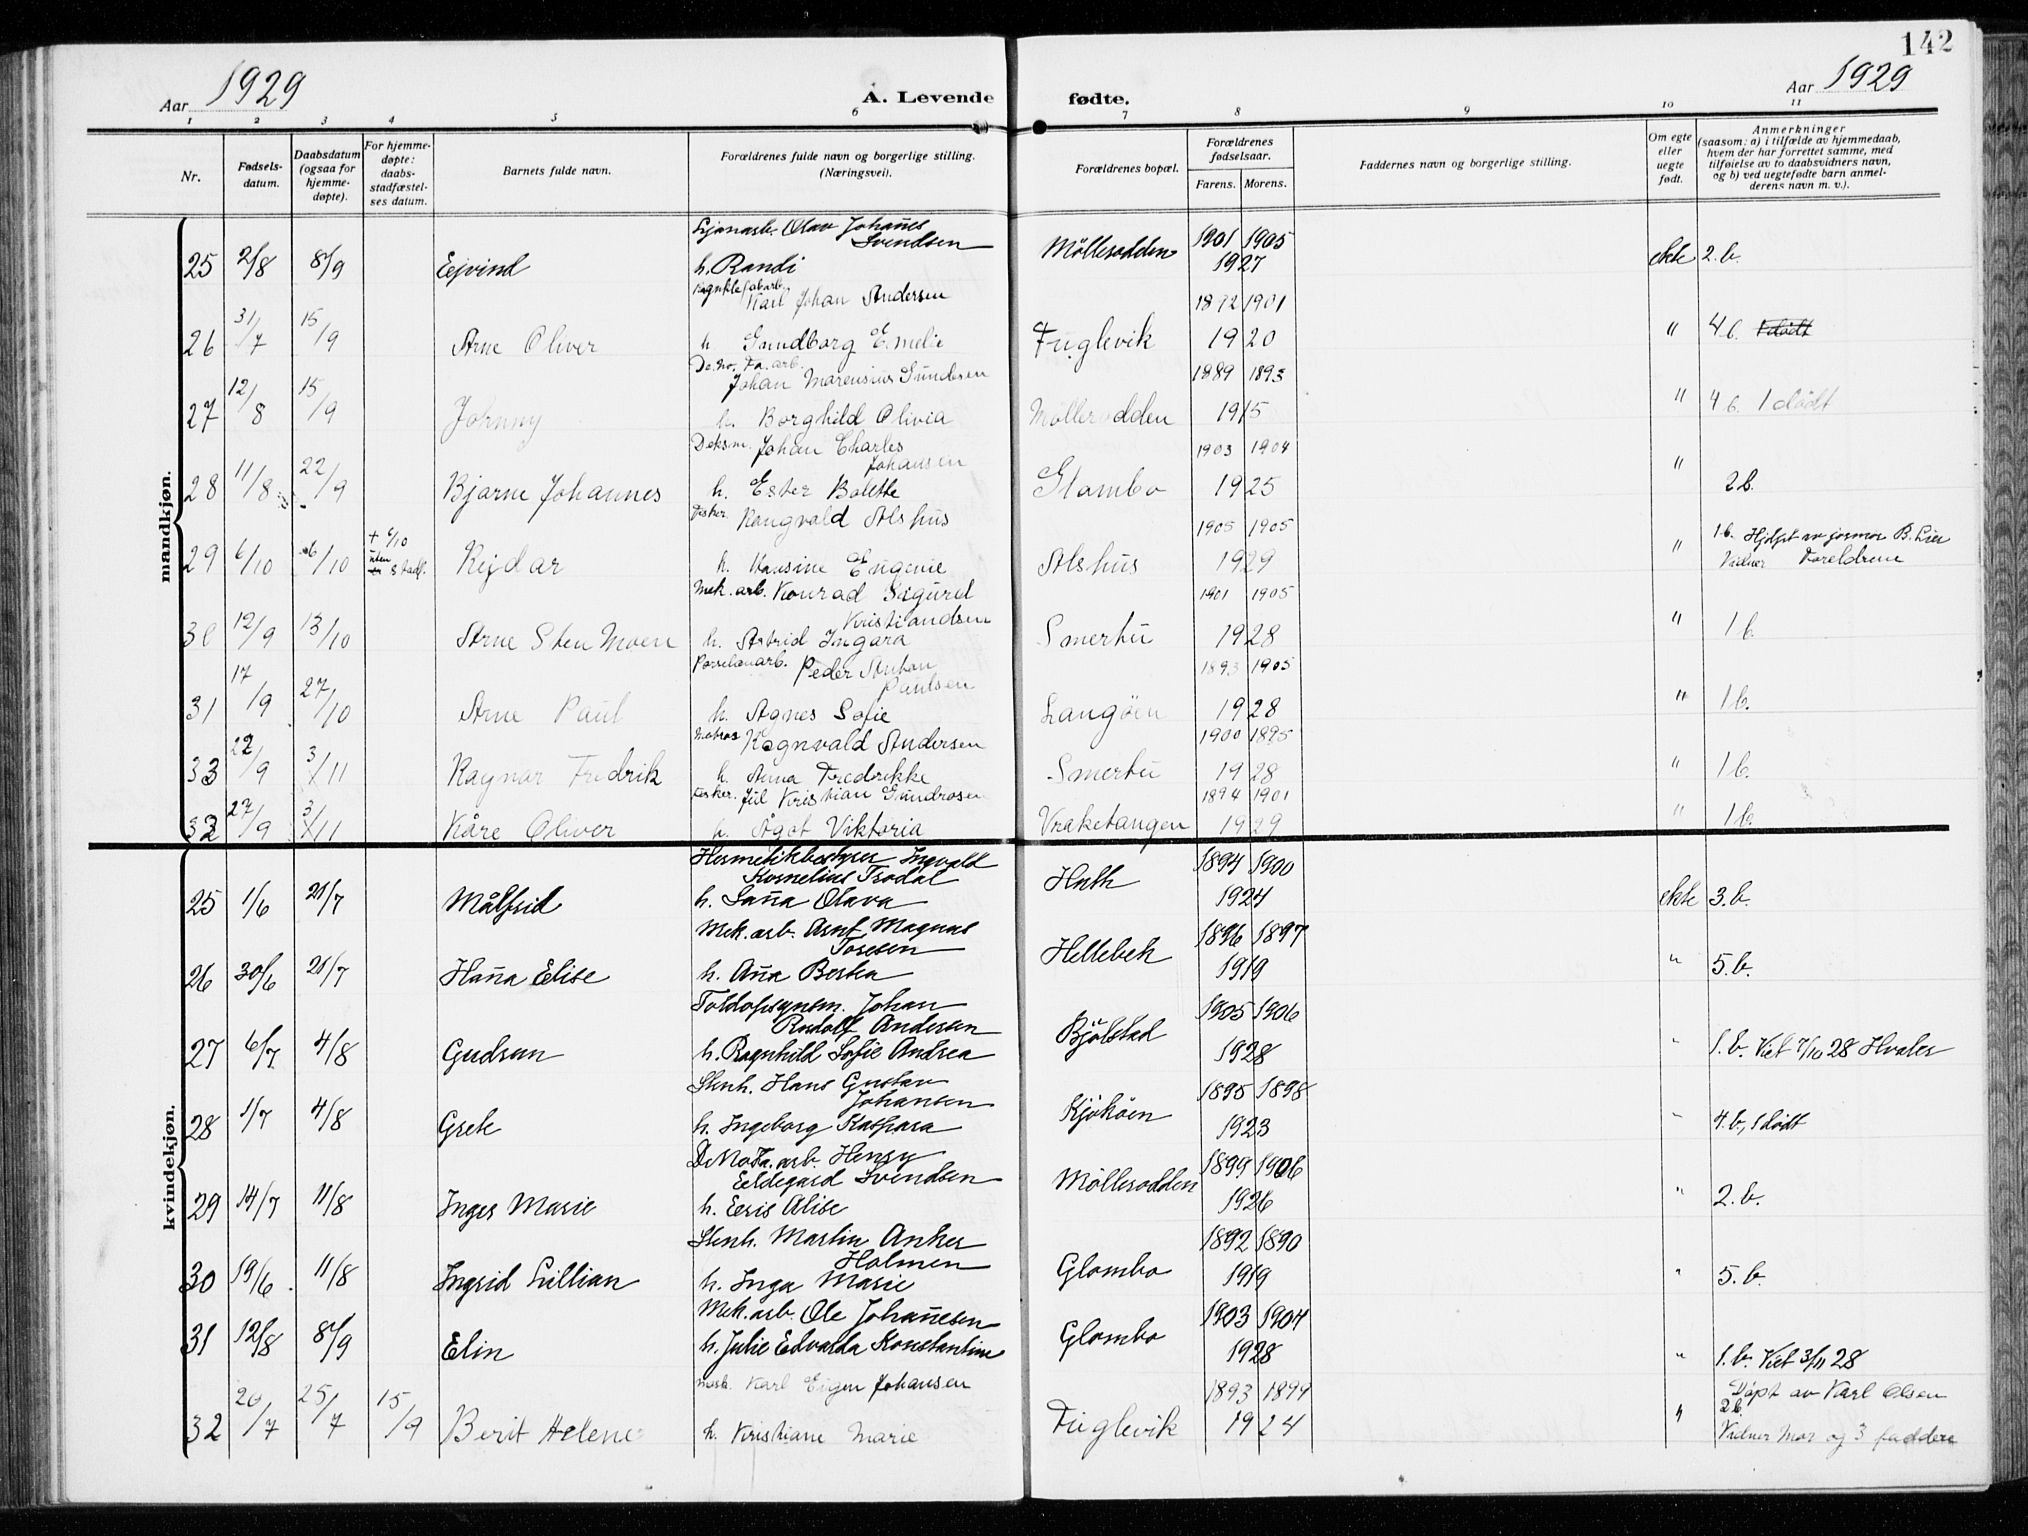 142
Aar 1929 A. Levende fødte. Aar 1929
1 2 3 4 5 6 7 8 9 10 11
Nr. Fødsels-datum. Daabsdatum (ogsaa for hjemme-døpte). For hjemme-døpte: daabs-stadfæstel-ses datum. Barnets fulde navn. Forældrenes fulde navn og borgerlige stilling. (Næringsvei). Forældrenes bopæl. Forældrenes fødselsaar. Farens. Morens. Faddernes navn og borgerlige stilling. Om egte eller uegte født. Anmerkninger (saasom: a) i tilfælde av hjemmedaab, hvem der har forrettet samme, med tilføielse av to daabsvidners navn, og b) ved uegtefødte barn anmel-derens navn m. v.).
mandkjøn.
Olav Johañes
Svendsen 1901 1905
25 2/8 8/9 Ejvind h. Randi Möllerodden 1927 ekte 2.b.
Karl Johan Andersen 1892 1901
26 31/7 15/9 Arne Oliver h. Gundborg Emelie Fuglevik 1920 " 4 b. 1 dödt
De.No.Fa.arb.
Johan Marensius Gundersen 1889 1893
27 12/8 15/9 Johnny h. Borghild Olivia Möllerodden 1915 " 4 b. 1 dödt
Johan Charles
Johansen 1903 1904
28 11/8 22/9 Bjarne Johannes h. Ester Bolette Glombo 1925 " 2 b.
Fisker Rangvald Alshus 1905 1905
29 6/10 6/10 + 6/10 uten stadf. Rejdar h. Hansine Eugenie Alshus 1929 " 1 b. Hjdpt av jormor B. Lier
Vidner Foreldrene
Mek. arb. Konrad Sigurd
Kristiandsen 1901 1905
30 12/9 13/10 Arne Sten Moen h. Astrid Ingara Smertu 1928 " 1 b.
Porselenarb. Peder Anton
Paulsen 1893 1905
31 17/9 27/10 Arne Paul h. Agnes Sofie Langöen 1928 " 1 b.
Matros Ragnvald Andersen 1900 1895
33 22/9 3/11 Ragnar Fredrik h. Anna Fredrikke Smertu 1928 " 1 b.
Fisker. Jul Kristian Gundrosen 1894 1901
32 27/9 3/11 Kåre Oliver h. Ågot Viktoria Vraketangen 1929 " 1 b.
kvindekjøn.
Hermetikbestyrer Ingvald
Kornelius Trodal 1894 1900
25 1/6 21/7 Målfrid h. Saña Olava Huth 1924 ekte 3.b.
Mek. arb. Arnt Magnus
Toresen 1896 1897
26 30/6 21/7 Haña Elise h. Aña Berta Hellebek 1919 " 5.b.
Toldopsynsm. Johan
Rudolf Andersen 1905 1906
27 6/7 4/8 Gudrun h. Ragnhild Sofie Andrea Bjölstad 1928 " 1.b. Viet 7/10 28 Hvaler
Stenh. Hans Gustav
Johansen 1895 1898
28 1/7 4/8 Grete h. Ingeborg Kaspara Kjököen 1923 " 4.b., 1 dödt
De NoFa. arb. Henry
Eeldegard Svendsen 1899 1906
29 14/7 11/8 Inger Marie h. Eeris Alise Möllerodden 1926 " 2.b.
Stenh. Martin Anker
Holmen 1892 1890
30 19/6 11/8 Ingrid Lillian h. Inga Marie Glombo 1919 " 5.b.
Mek. arb. Ole Johañesen 1903 1904
31 12/8 8/9 Elin h. Julie Edvarda Konstantine Glombo 1928 " 1.b. Viet 3/11 28
Karl Eugen Johansen 1893 1899 Döpt av Karl Olsen
32 20/7 25/7 15/9 Berit Helene h. Kristiane Marie Fuglevik 1924 " 2 b.
Vidner Mor og 3 faddere